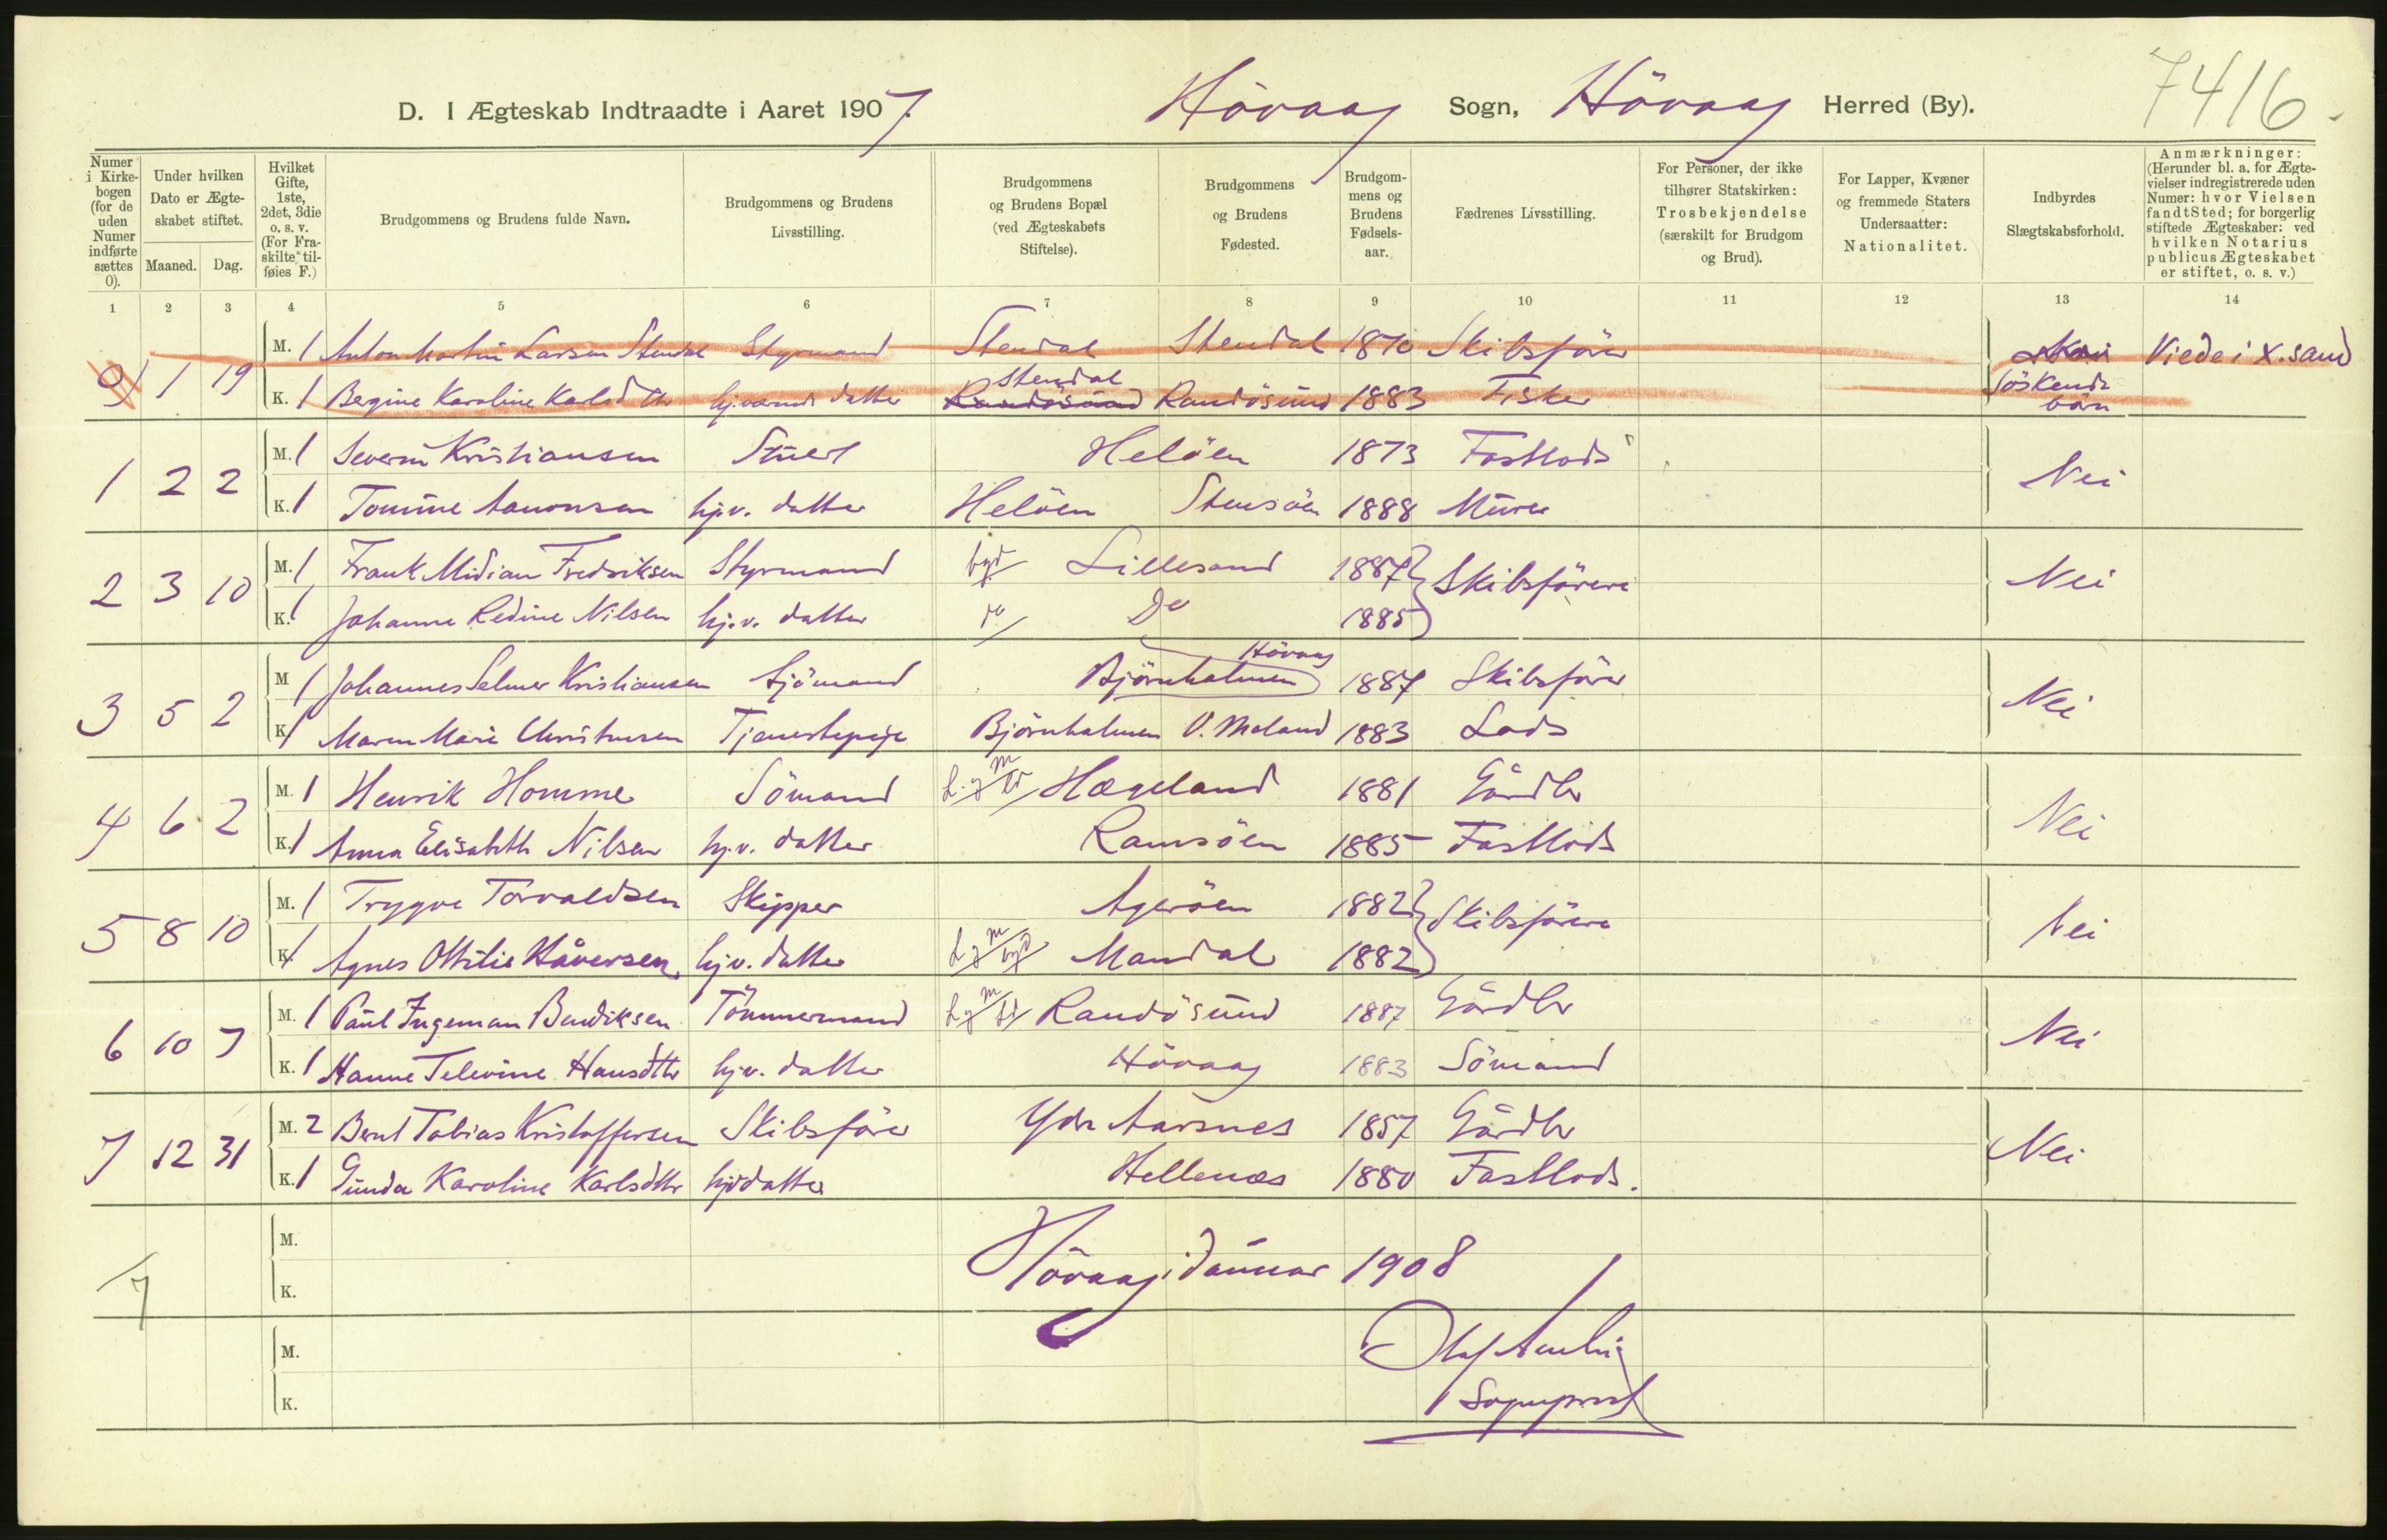 7416.
D. I Ægteskab Indtraadte i Aaret 1907. Hövaag Sogn, Hövaag Herred (By).
Numer i Kirkebogen (for de uden Numer indførte sættes 0).
Under hvilken Dato er Ægteskabet stiftet.
Maaned. Dag.
Hvilket Gifte, 1ste, 2det, 3die o. s. v. (For Fraskilte tilføies F.)
Brudgommens og Brudens fulde Navn.
Brudgommens og Brudens Livsstilling.
Brudgommens og Brudens Bopæl (ved Ægteskabets Stiftelse).
Brudgommens og Brudens Fødested.
Brudgommens og Brudens Fødselsaar.
Fædrenes Livsstilling.
For Personer, der ikke tilhører Statskirken: Trosbekjendelse (særskilt for Brudgom og Brud).
For Lapper, Kvæner og fremmede Staters Undersaatter: Nationalitet.
Indbyrdes Slægtskabsforhold.
Anmærkninger: (Herunder bl. a. for Ægtevielser indregistrerede uden Numer: hvor Vielsen fandt Sted; for borgerlig stiftede Ægteskaber: ved hvilken Notarius publicus Ægteskabet er stiftet, o. s. v.)
1 2 3 4 5 6 7 8 9 10 11 12 13 14
0 1 19 M. 1 Anton Martin Larsen Stendal Styrmand Stendal Stendal 1870 Skibsförer Viede i X.sand
K. 1 Bergine Karoline Karlsdtr hj.værende datter Stendal Randösund Randösund 1883 Fisker Söskendebörn
1 2 2 M. 1 Severin Kristiansen Stuert Helöen 1873 Fastlods Nei
K. 1 Tomine Aanonsen hj.v. datter Helöen Stensöen 1888 Murer
2 3 10 M. 1 Frank Midian Fredriksen Styrmand byd Lillesand 1887 Skibsförere Nei
K. 1 Johanne Redine Nilsen hj.v. datter do Do 1885
3 5 2 M 1 Johannes Selmer Kristiansen Sjömand Björnholmen Hövaag 1887 Skibsförer Nei
K 1 Maren Marie Christensen Tjenestepige Björnholmen V. Moland 1883 Lods
4 6 2 M. 1 Henrik Homme Sömand Hægeland 1881 Gårdbr Nei
K. 1 Anna Elisabeth Nilsen hj.v. datter Ramsöen 1885 Fastlods
5 8 10 M. 1 Trygve Torvaldsen Skipper Ageröen 1882 Skibsförere Nei
K 1 Agnes Ottilie Håversen hj.v. datter Mandal 1882
6 10 7 M. 1 Paul Ingeman Bendiksen Tömmermand Randösund 1887 Gårdbr Nei
K. 1 Hanne Televine Hansdtr hj.v. datter Hövaag 1883 Sömand
7 12 31 M. 2 Bernt Tobias Kristoffersen Skibsförer Ydr Aarsnes 1857 Gårdbr Nei
K. 1 Gunda Karoline Karlsdtr hjvdatter Hellenæs 1880 Fastlods.
M.
K.
7
Hövaag i Januar 1908
M.
K.
Olaf
Sogneprest